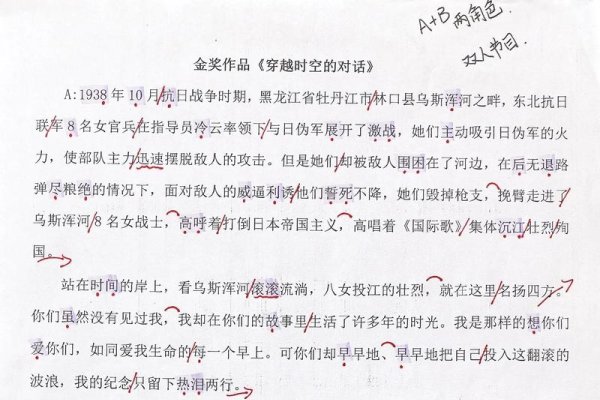 A+B 两角色.
双人节目.
金奖作品《穿越时空的对话》
A:1938 年 10 月抗日战争时期，黑龙江省牡丹江市林口县乌斯浑河之畔，东北抗日
联军 8 名女官兵在指导员冷云率领下与日伪军展开了激战，她们主动吸引日伪军的火
力，使部队主力迅速摆脱敌人的攻击。但是她们却被敌人围困在了河边，在后无退路
弹尽粮绝的情况下，面对敌人的威逼利诱他们誓死不降，她们毁掉枪支，挽臂走进了
乌斯浑河 8 名女战士，高呼着打倒日本帝国主义，高唱着《国际歌》集体沉江壮烈殉
国。
站在时间的岸上，看乌斯浑河滚滚流淌，八女投江的壮烈，就在这里名扬四方。
你们虽然没有见过我，我却在你们的故事里生活了许多年的时光。我是那样的想你们
爱你们，如同爱我生命的每一个早上。可你们却早早地、早早地把自己投入这翻滚的
波浪，我的纪念只留下热泪两行。